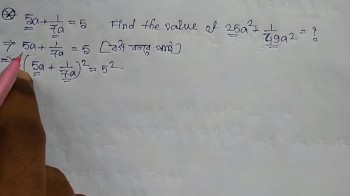 5a + 1/7a = 5 Find the value of 25a² + 1/49a² = ?
⇒ 5a + 1/7a = 5
⇒ (5a + 1/7a)² = 5²